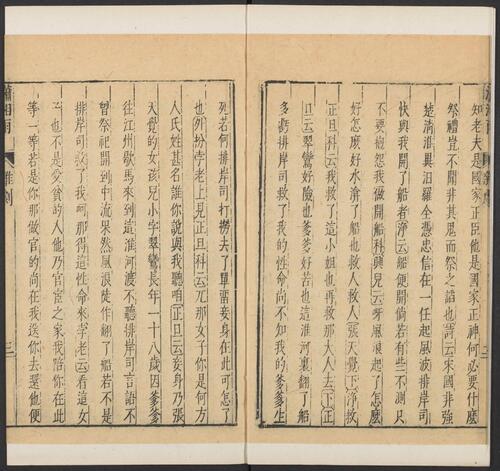 知老夫是國家正臣他是國家正神何必要什麼
祭禮豈不聞非其鬼而祭之諂也詩云宋國非強
楚清淮異汨羅全憑忠信在一任起風波排岸司
快與我開了船者淨云船便開倘若有些不測只
不要抱怨我做開船科興兒云呀風浪起了怎麼
好怎麼好水渰了船也救人救人張天覺下淨救
正旦科云我救了這小姐也再救那大人去下正
旦云翠鸞好險也爹爹好苦也這淮河裏翻了船
多虧排岸司救了我的性命尚不知我的爹爹生
死若何排岸司打撈去了單留妾身在此可怎了
也外扮孛老上見正旦科云兀那女子你是何方
人氏姓甚名誰你說與我聽咱正旦云妾身乃張
天覺的女孩兒小字翠鸞長年一十八歲因爹爹
往江州歇馬來到這淮河渡不聽排岸司言語不
曾祭祀開到中流果然風浪陡作翻了船若不是
排岸司救了我呵那得這性命來孛老云看這女
子也不是受貧的人他乃官宦之家我陪你在此
等一等若是你那做官的尚在我送你去還也便
瀟湘雨
雜劇
三